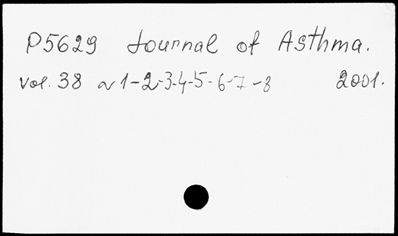 P5629 Journal of Asthma.
vol. 38 N 1-2-3-4-5-6-7-8 2001.